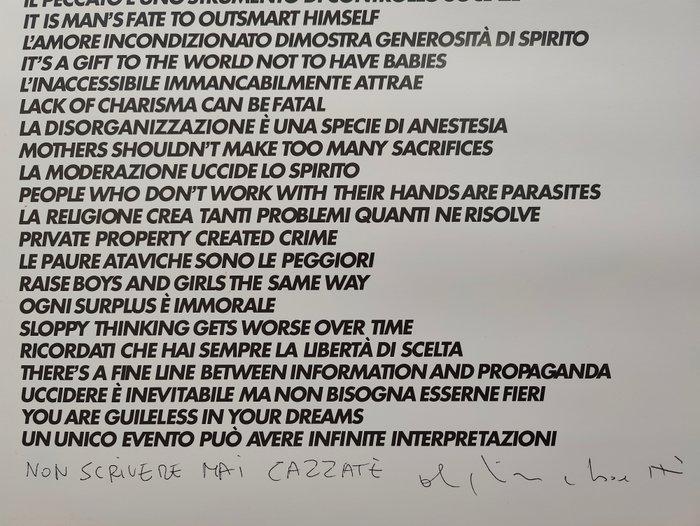 IL PECCATO È UNO STRUMENTO DI CONTROLLO SOCIALE
IT IS MAN'S FATE TO OUTSMART HIMSELF
L'AMORE INCONDIZIONATO DIMOSTRA GENEROSITÀ DI SPIRITO
IT'S A GIFT TO THE WORLD NOT TO HAVE BABIES
L'INACCESSIBILE IMMANCABILMENTE ATTRAE
LACK OF CHARISMA CAN BE FATAL
LA DISORGANIZZAZIONE È UNA SPECIE DI ANESTESIA
MOTHERS SHOULDN'T MAKE TOO MANY SACRIFICES
LA MODERAZIONE UCCIDE LO SPIRITO
PEOPLE WHO DON'T WORK WITH THEIR HANDS ARE PARASITES
LA RELIGIONE CREA TANTI PROBLEMI QUANTI NE RISOLVE
PRIVATE PROPERTY CREATED CRIME
LE PAURE ATAVICHE SONO LE PEGGIORI
RAISE BOYS AND GIRLS THE SAME WAY
OGNI SURPLUS È IMMORALE
SLOPPY THINKING GETS WORSE OVER TIME
RICORDATI CHE HAI SEMPRE LA LIBERTÀ DI SCELTA
THERE'S A FINE LINE BETWEEN INFORMATION AND PROPAGANDA
UCCIDERE È INEVITABILE MA NON BISOGNA ESSERNE FIERI
YOU ARE GUILELESS IN YOUR DREAMS
UN UNICO EVENTO PUÒ AVERE INFINITE INTERPRETAZIONI
NON SCRIVERE MAI CAZZATE